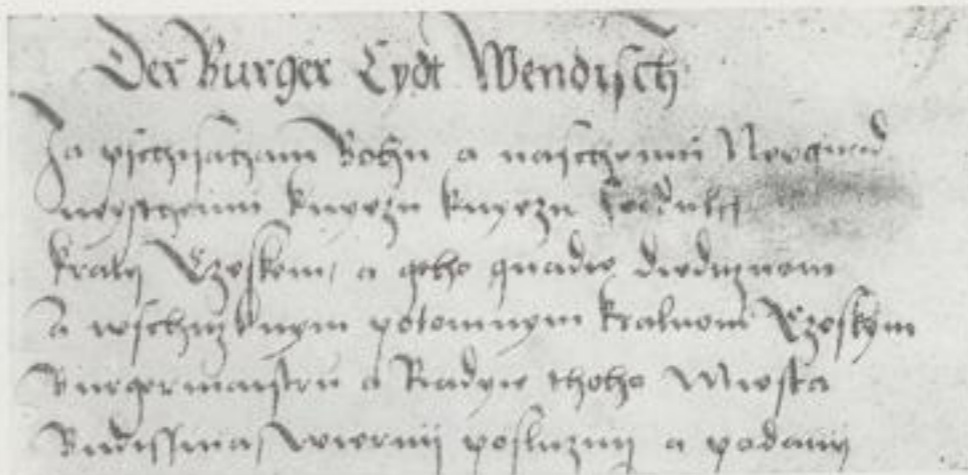 Der Burger Eydt Wendisch
Ja pschisatzam Bohu a naschemu
knyezu knyezu
kraly Czeskem, a geho gnadie diediznom
A wschitzknym potomnym kralnom Czeskym
Burgermaistru a Radzie thoho Miesta
Budissina, wiernii posluznii a podanii